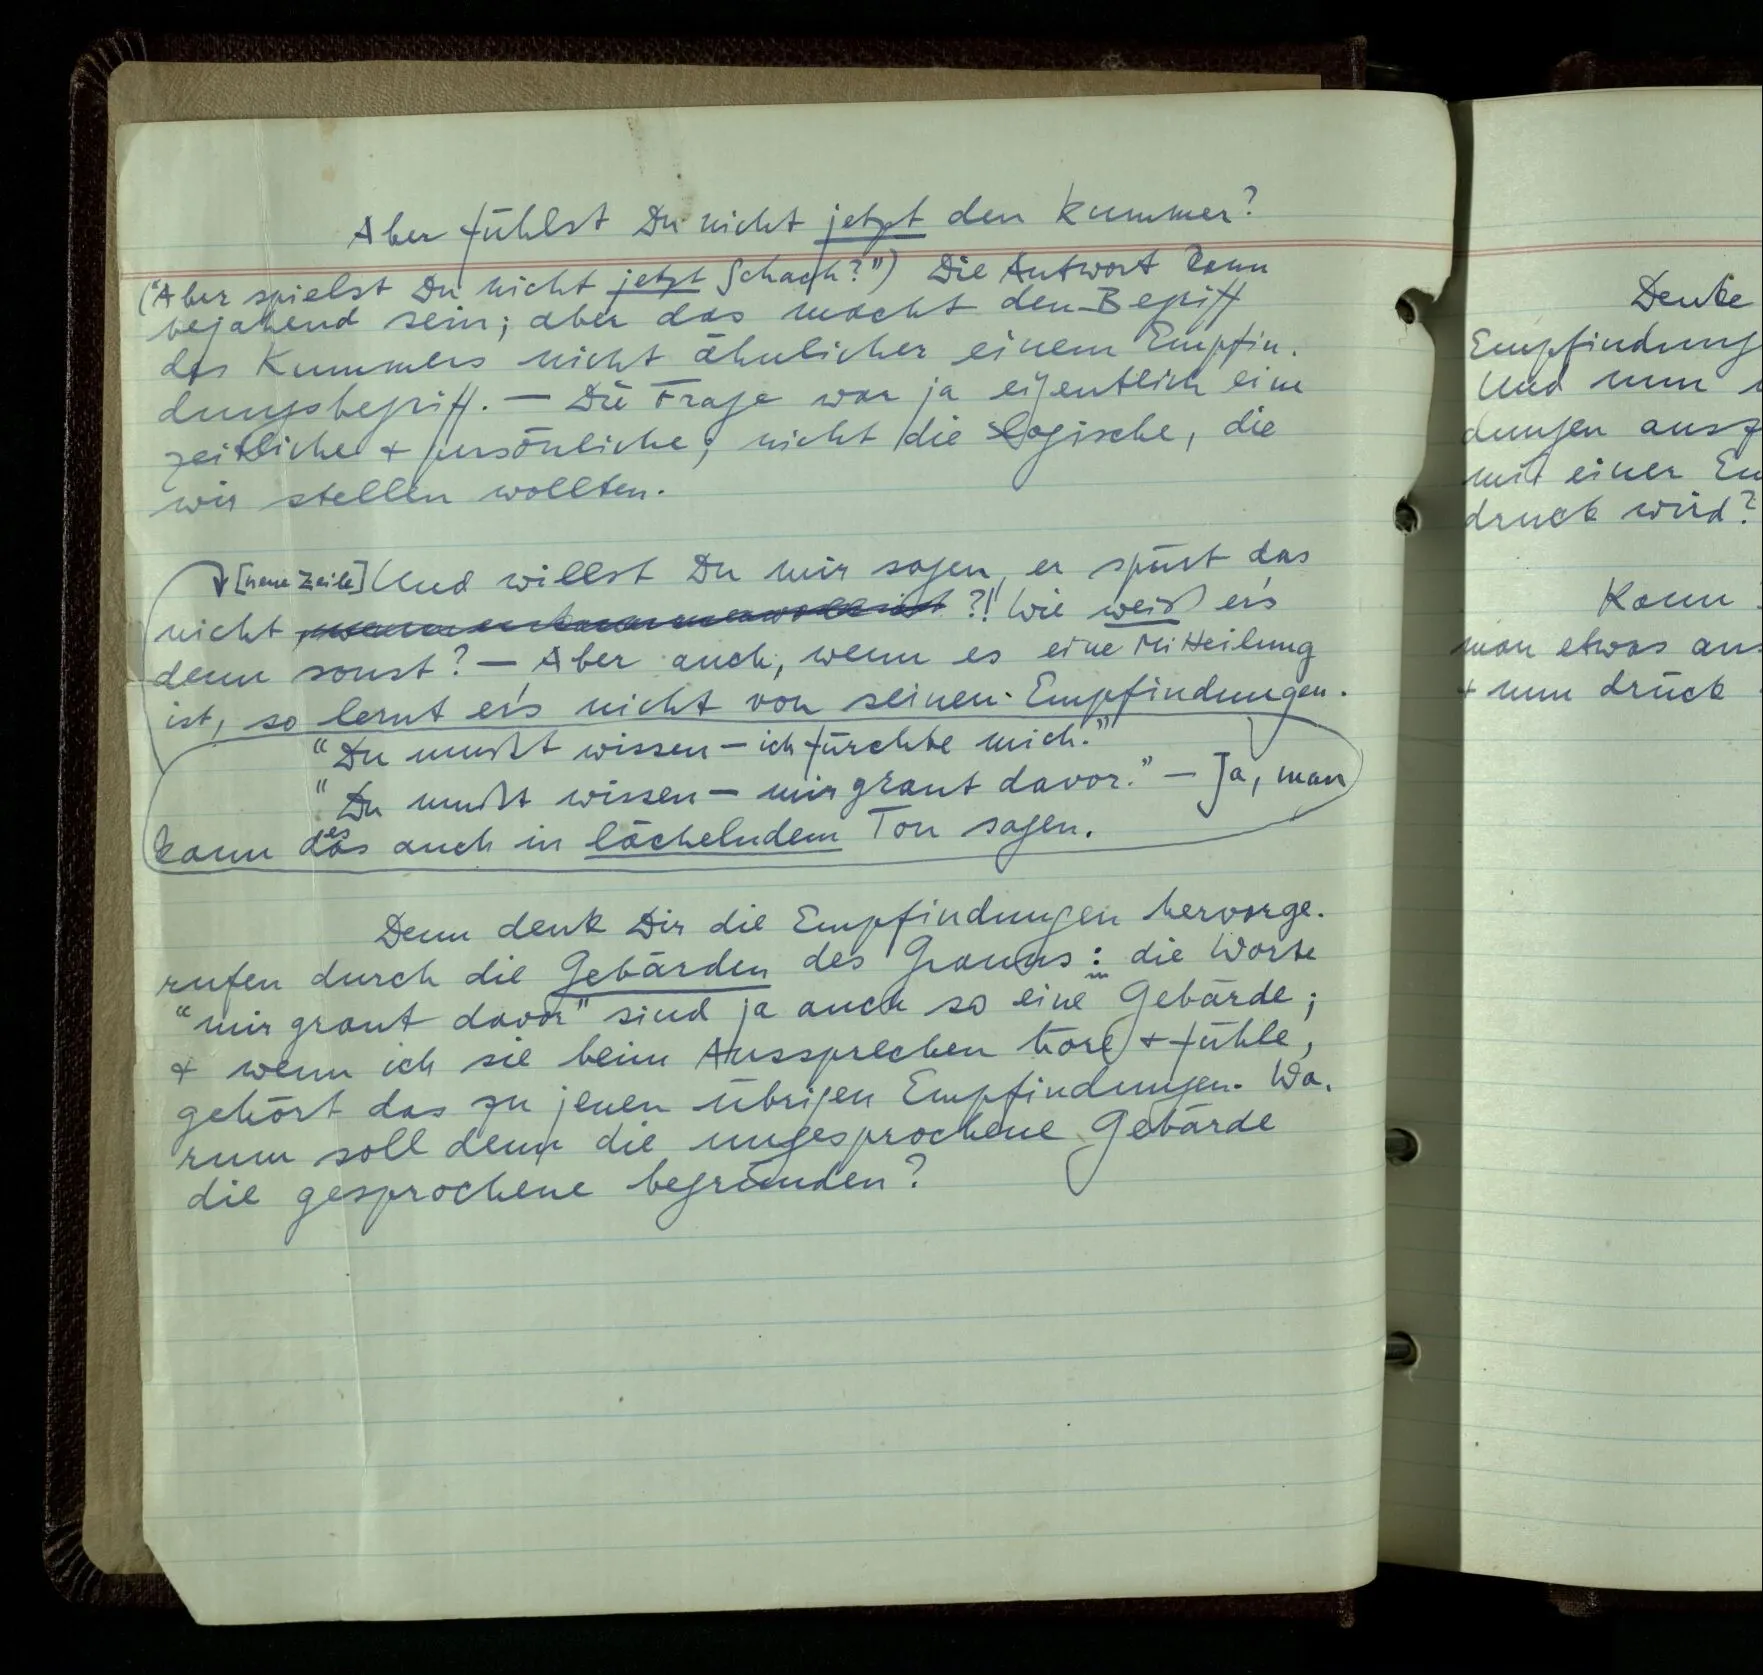 Aber fühlst Du nicht jetzt den Kummer?
("Aber spielst Du nicht jetzt Schach?") Die Antwort kann
bejahend sein; aber das macht den Begriff
des Kummers nicht ähnlicher einem Empfin-
dungsbegriff. — Die Frage war ja eigentlich eine
zeitliche & persönliche; nicht die logische, die
wir stellen wollten.
[neue Zeile] Und willst Du mir sagen, er spürt das
nicht ?! Wie weiß er's
denn sonst? — Aber auch, wenn es eine Mitteilung
ist, so lernt er's nicht von seinen Empfindungen.
"Du mußt wissen — ich fürchte mich."
"Du mußt wissen — mir graut davor." — Ja, man
kann das auch in lächelndem Ton sagen.
es
Denn denk Dir die Empfindungen hervorge-
rufen durch die Gebärden des Grauens: die Worte
"mir graut davor" sind ja auch so eine Gebärde;
& wenn ich sie beim Aussprechen höre & fühle,
gehört das zu jenen übrigen Empfindungen. Wa-
rum soll denn die ungesprochene Gebärde
die gesprochene begründen?
Denke
Empfindung
Und nun
dungen
mit einer
druck wird?
Kann
man etwas
& nun drück